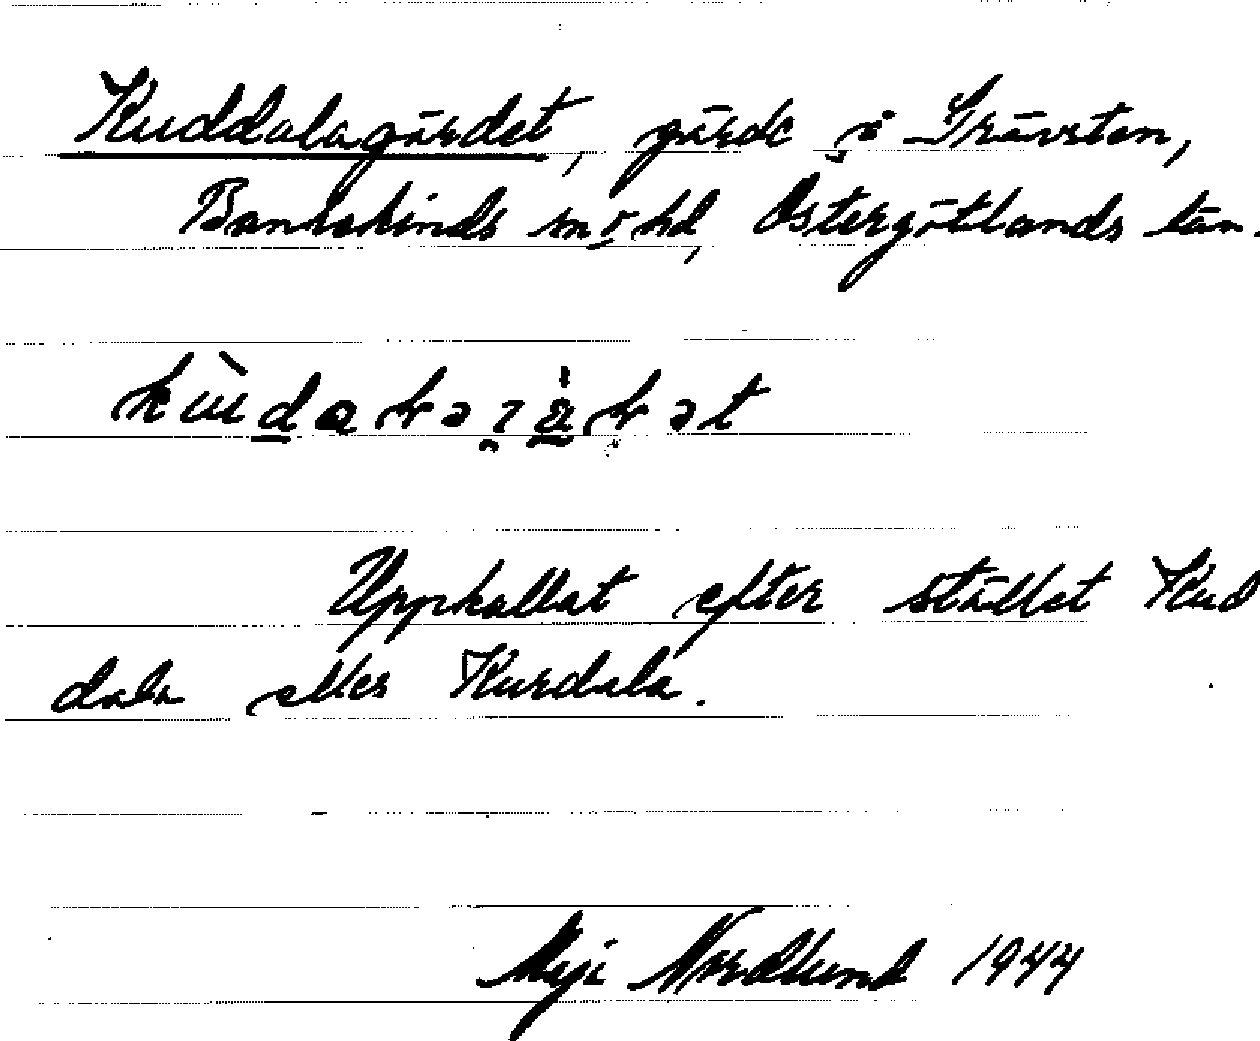 Kuddalagärdet, gärde i Grävsten,
Bankekinds sn o hd, Östergötlands län.
Uppkallat efter stället Kud
dala eller Kurdala.
Maji Nordlund 1944